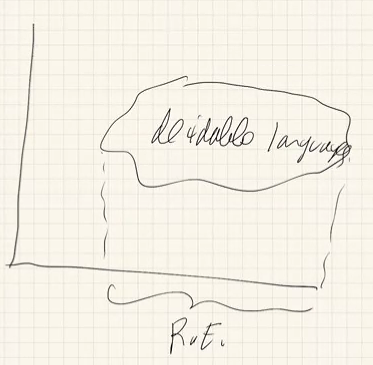 decidable languages
R.E.